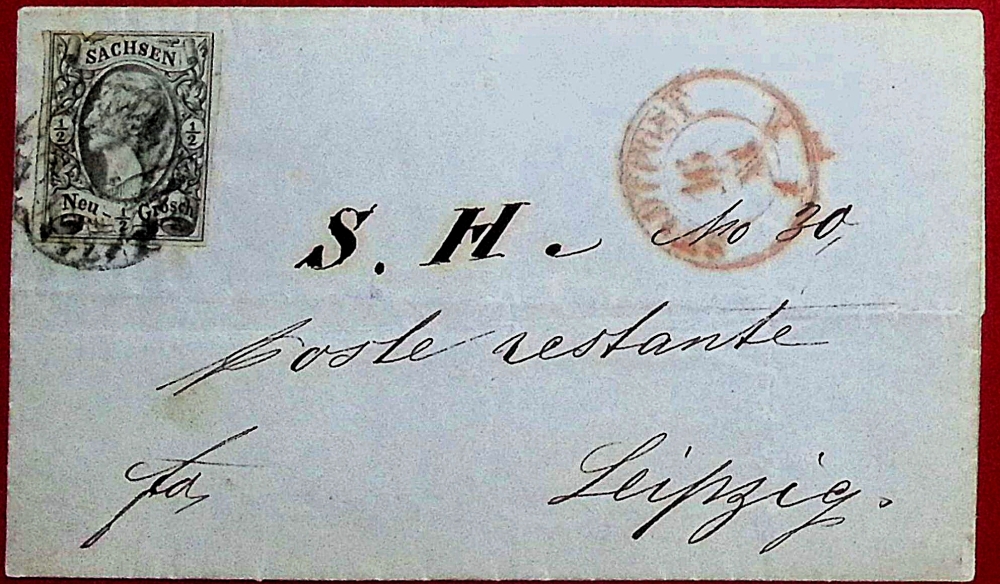 SACHSEN
½ ½
Neu- ½ Grosch
STADTPOST
S. H. No 30,
Poste restante
fo,
Leipzig.